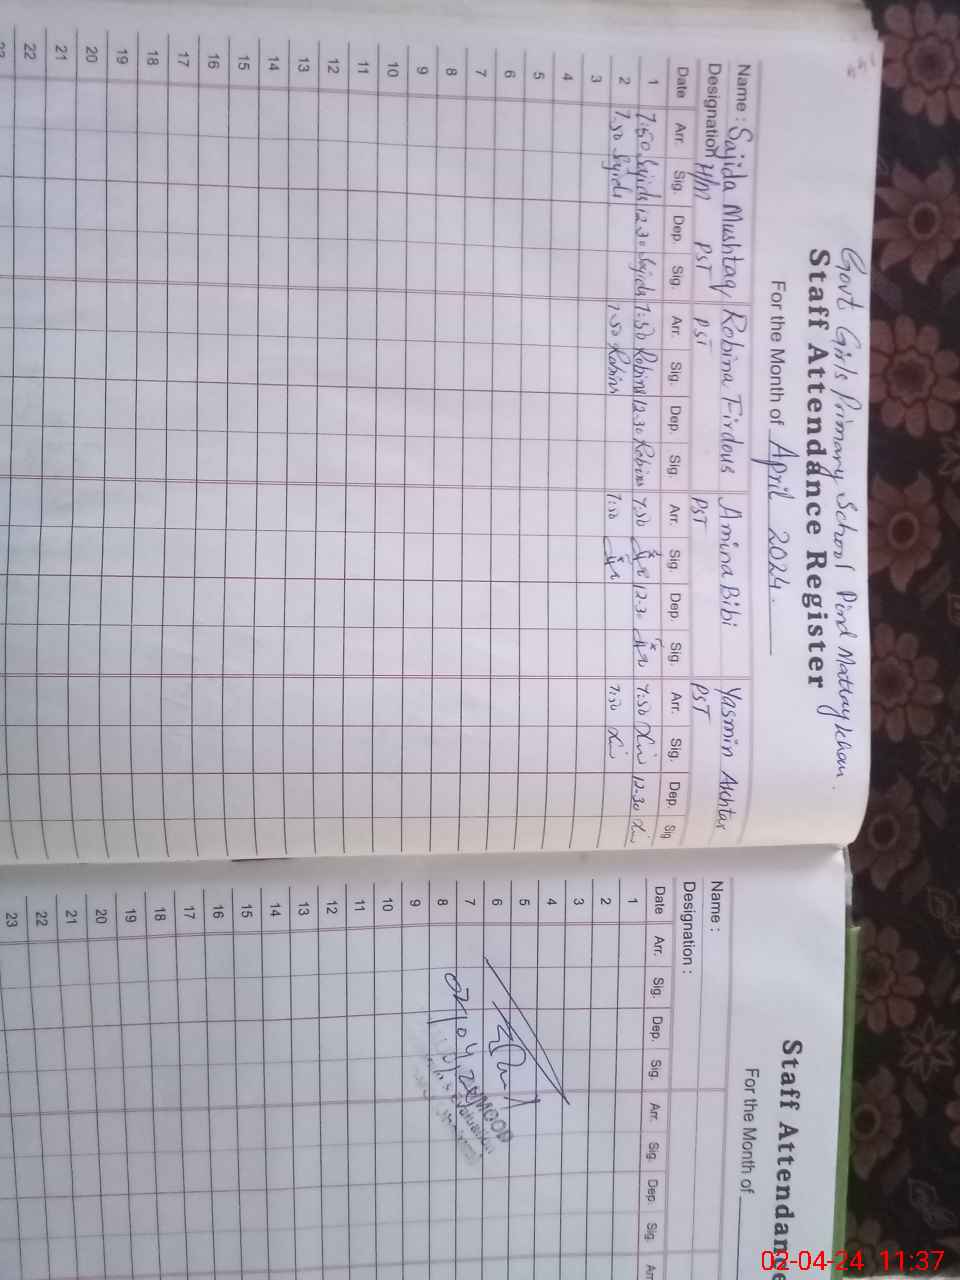 Govt Girls Primary School Pind Mattay Khan.
Staff Attendance Register
For the Month of April 2024.
Name : Sajida Mushtaq Robina Firdous Amina Bibi Yasmin Akhtar
Designation H/M PST PST PST PST
Date Arr. Sig. Dep. Sig. Arr. Sig. Dep. Sig. Arr. Sig. Dep. Sig. Arr. Sig. Dep. Sig
1 7:50 Sajida 12.30 Sajida 7:50 Robina 12.30 Robina 7:50 12.30 7:50 12.30
2 7.50 Sajida 7.50 Robina 7:50 7:50
3
4
5
6
7
8
9
10
11
12
13
14
15
16
17
18
19
20
21
22
23
Staff Attendance
For the Month of
Name :
Designation :
Date Arr. Sig. Dep. Sig. Arr. Sig. Dep. Sig. Arr
1
2
3
4
5
6
7
8
9
10
11
12
13
14
15
16
17
18
19
20
21
22
23
02/04/24
MOOD
02-04-24 11:37